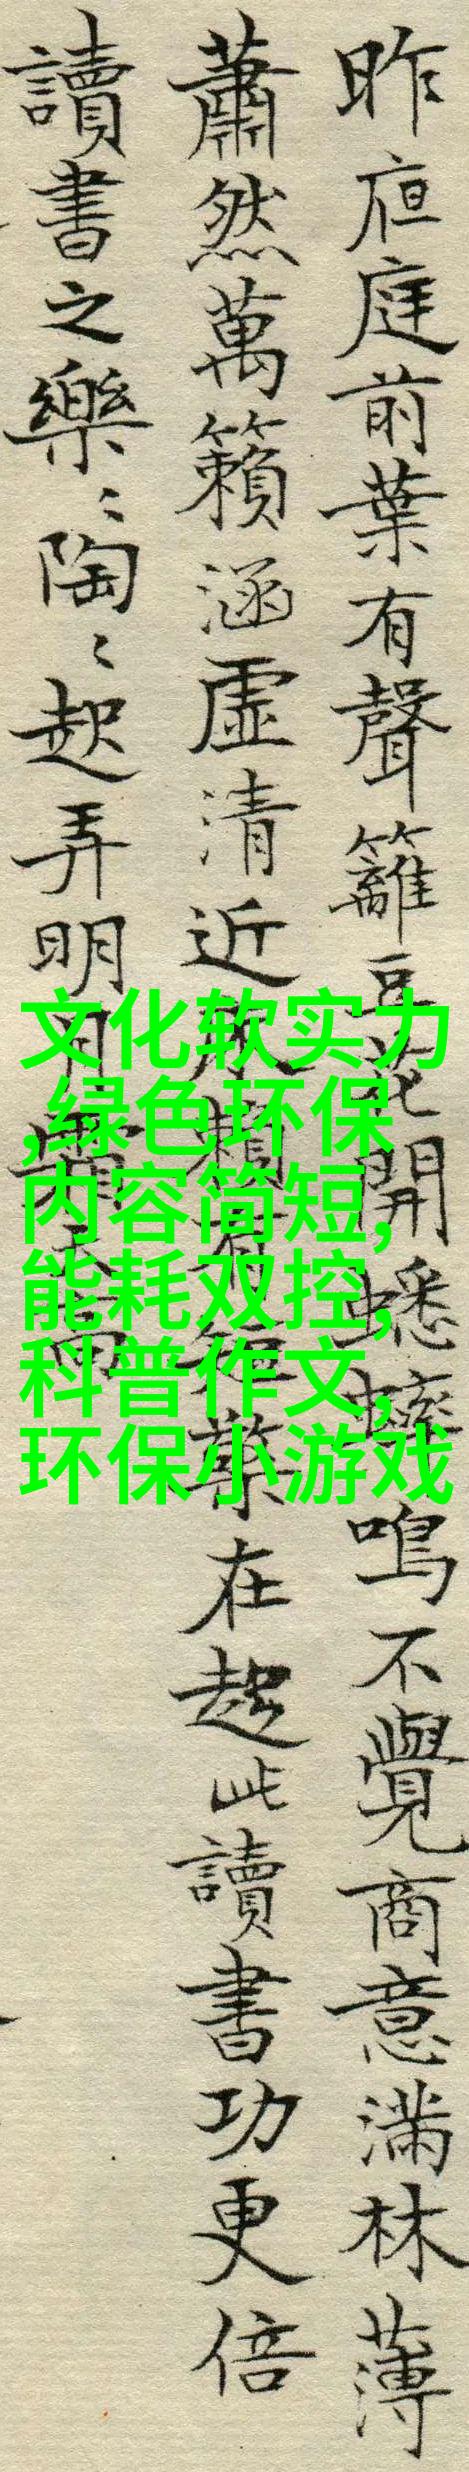 昨夜庭前葉有聲籬豆花開蟋蟀鳴不覺商意滿林薄
蕭然萬籟涵虛清近床賴有短檠在起此讀書功更倍
讀書之樂〻陶〻起弄明月霜天高
文化软实力
,绿色环保
内容简短,
能耗双控,
科普作文,
环保小游戏